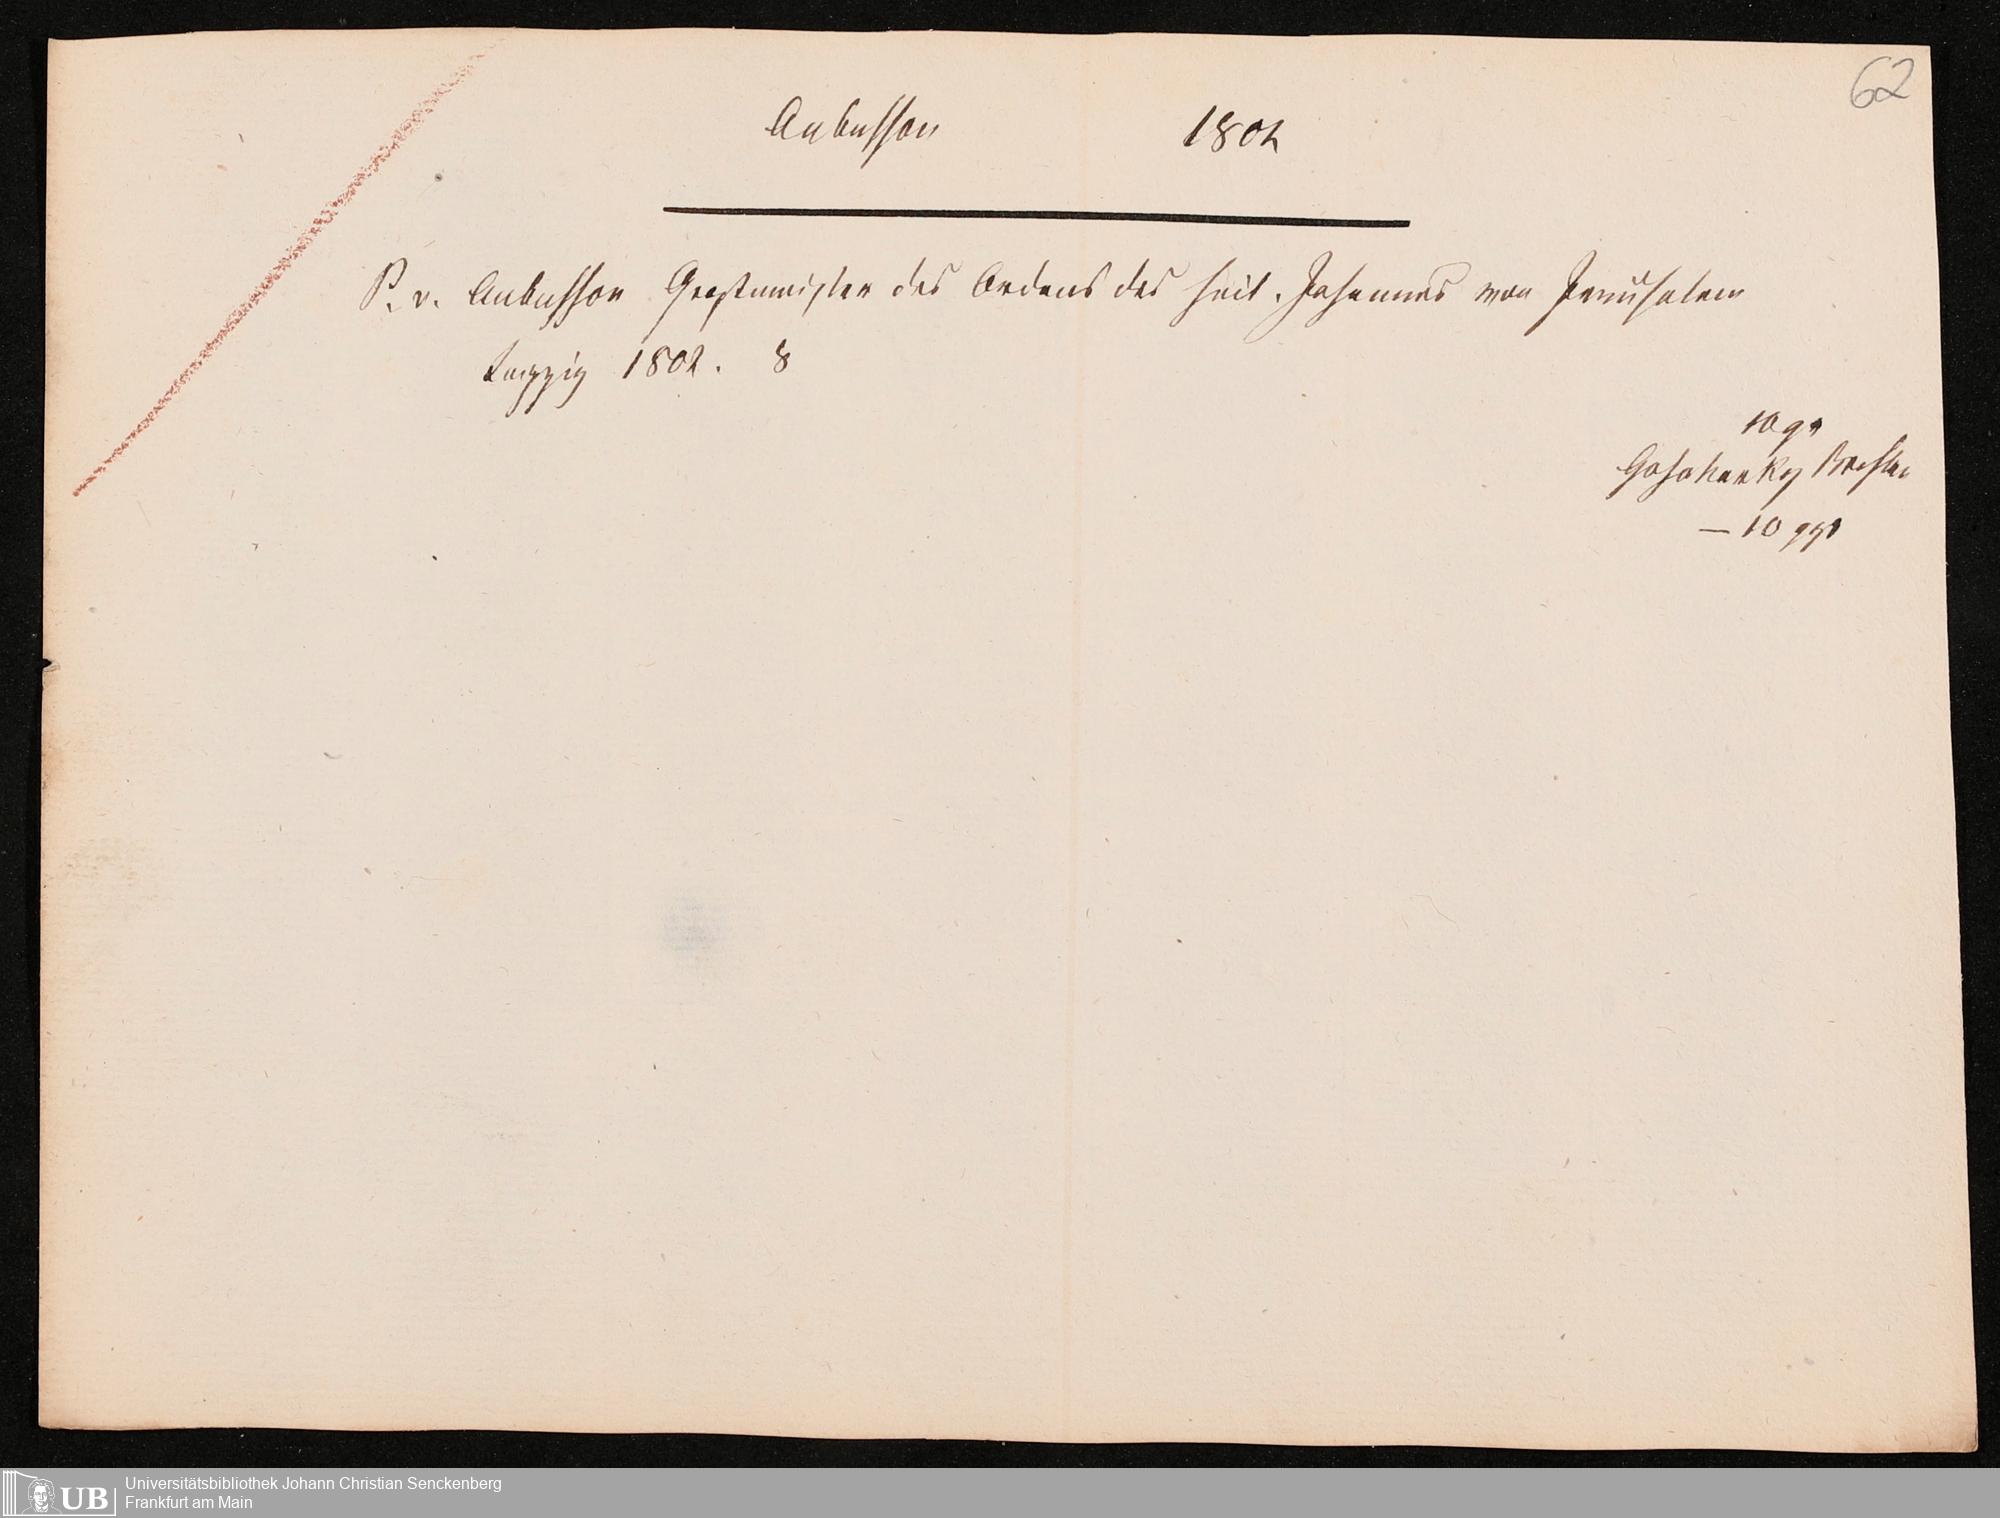 62
Aubusson 1802
P. v. Aubusson Grosmeister des Ordens des heil. Johannes von Jerusalem
Leipzig 1802. 8
10 gr
Gosohorsky Breslau
— 10 ggr
UB Universitätsbibliothek Johann Christian Senckenberg
Frankfurt am Main